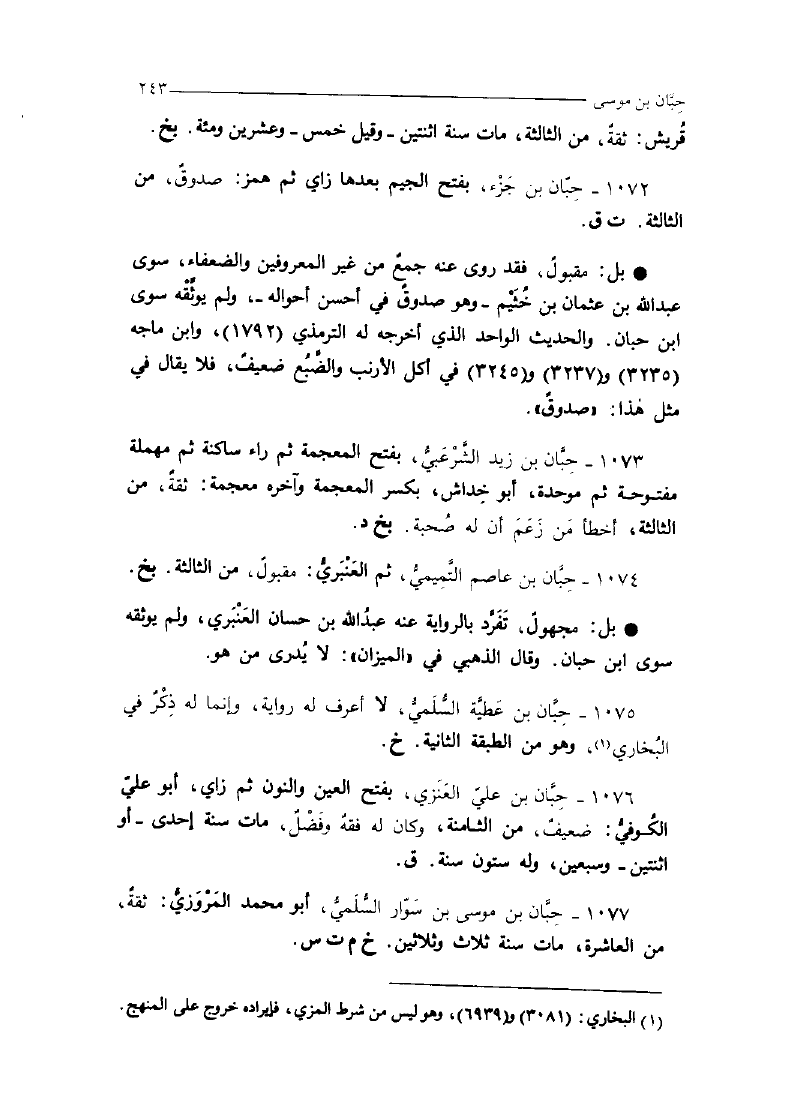 حِبَّان بن موسى ٢٤٣
قُريش: ثقةٌ، من الثالثة، مات سنة اثنتين ـ وقيل خمس ـ وعشرين ومئة. بخ.
١٠٧٢ ـ حِبَّان بن جَزْء، بفتح الجيم بعدها زاي ثم همز: صدوقٌ، من
الثالثة. ت ق.
● بل: مقبولٌ، فقد روى عنه جمعٌ من غير المعروفين والضعفاء، سوى
عبدالله بن عثمان بن خُثَيْم ـ وهو صدوقٌ في أحسن أحواله ـ، ولم يوثِّقْه سوى
ابن حبان. والحديث الواحد الذي أخرجه له الترمذي (١٧٩٢)، وابن ماجه
(٣٢٣٥) و(٣٢٣٧) و(٣٢٤٥) في أكل الأرنب والضَّبُع ضعيفٌ، فلا يقال في
مثل هٰذا: «صدوقٌ».
١٠٧٣ ـ حِبَّان بن زيد الشَّرْعَبيُّ، بفتح المعجمة ثم راء ساكنة ثم مهملة
مفتوحة ثم موحدة، أبو خِداش، بكسر المعجمة وآخره معجمة: ثقةٌ، من
الثالثة، أخطأ مَن زَعَمَ أن له صُحبة. بخ د.
١٠٧٤ ـ حِبَّان بن عاصم التَّميميُّ، ثم العَنْبَريُّ: مقبولٌ، من الثالثة. بخ.
● بل: مجهولٌ، تَفَرَّد بالرواية عنه عبدُالله بن حسان العَنْبَري، ولم يوثقه
سوى ابن حبان. وقال الذهبي في «الميزان»: لا يُدرى من هو.
١٠٧٥ ـ حِبَّان بن عَطيَّة السُّلَميُّ، لا أعرف له رواية، وإنما له ذِكْرٌ في
البُخاري(١)، وهو من الطبقة الثانية. خ.
١٠٧٦ ـ حِبَّان بن عليّ العَنَزي، بفتح العين والنون ثم زاي، أبو عليّ
الكُوفيُّ: ضعيفٌ، من الثامنة، وكان له فقهٌ وفَضْلٌ، مات سنة إحدى ـ أو
اثنتين ـ وسبعين، وله ستون سنة. ق.
١٠٧٧ ـ حِبَّان بن موسى بن سَوّار السُّلَميُّ، أبو محمد المَرْوَزيُّ: ثقةٌ،
من العاشرة، مات سنة ثلاث وثلاثين. خ م ت س.
(١) البخاري: (٣٠٨١) و(٦٩٣٩)، وهو ليس من شرط المزي، فإيراده خروج على المنهج.